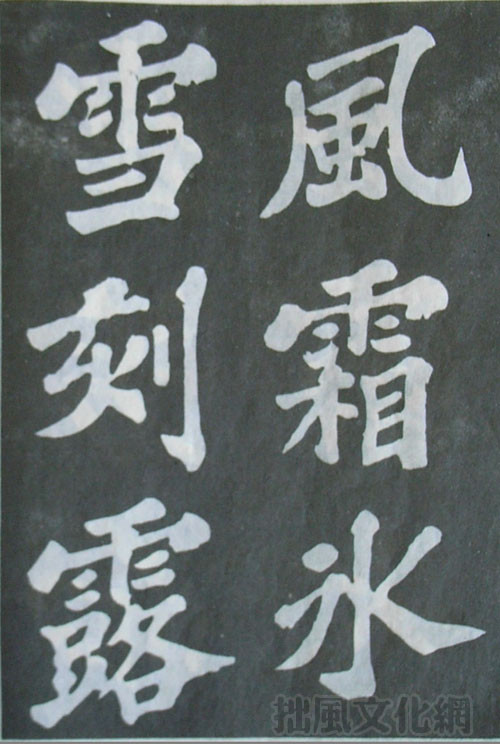 風霜冰
雪刻露
拙風文化網